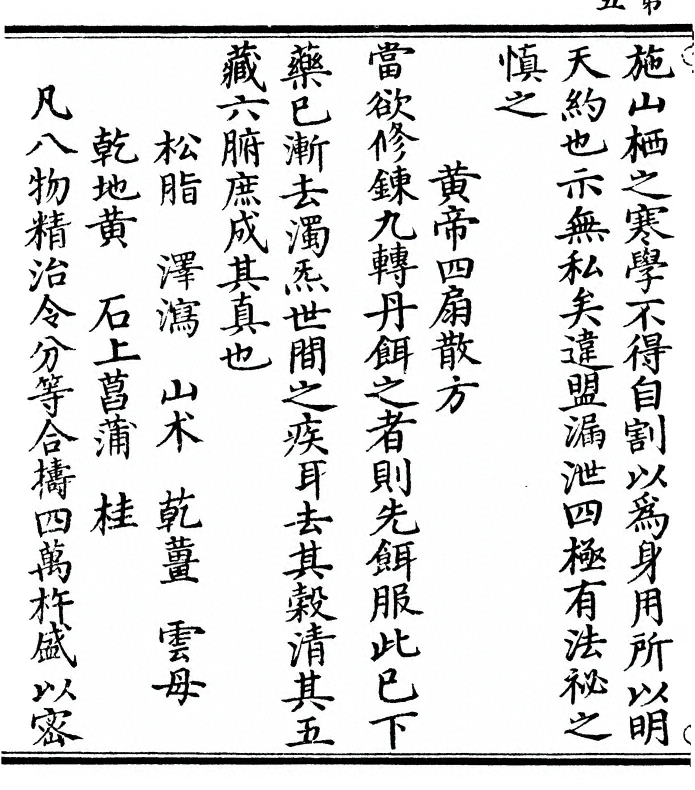 施山栖之寒學不得自割以為身用所以明
天約也示無私矣違盟漏泄四極有法祕之
慎之
黄帝四扇散方
當欲修鍊九轉丹餌之者則先餌服此已下
藥已漸去濁炁世間之疾耳去其穀清其五
藏六腑庶成其真也
松脂 澤瀉 山术 乾薑 雲母
乾地黄 石上菖蒲 桂
凡八物精治令分等合擣四萬杵盛以密